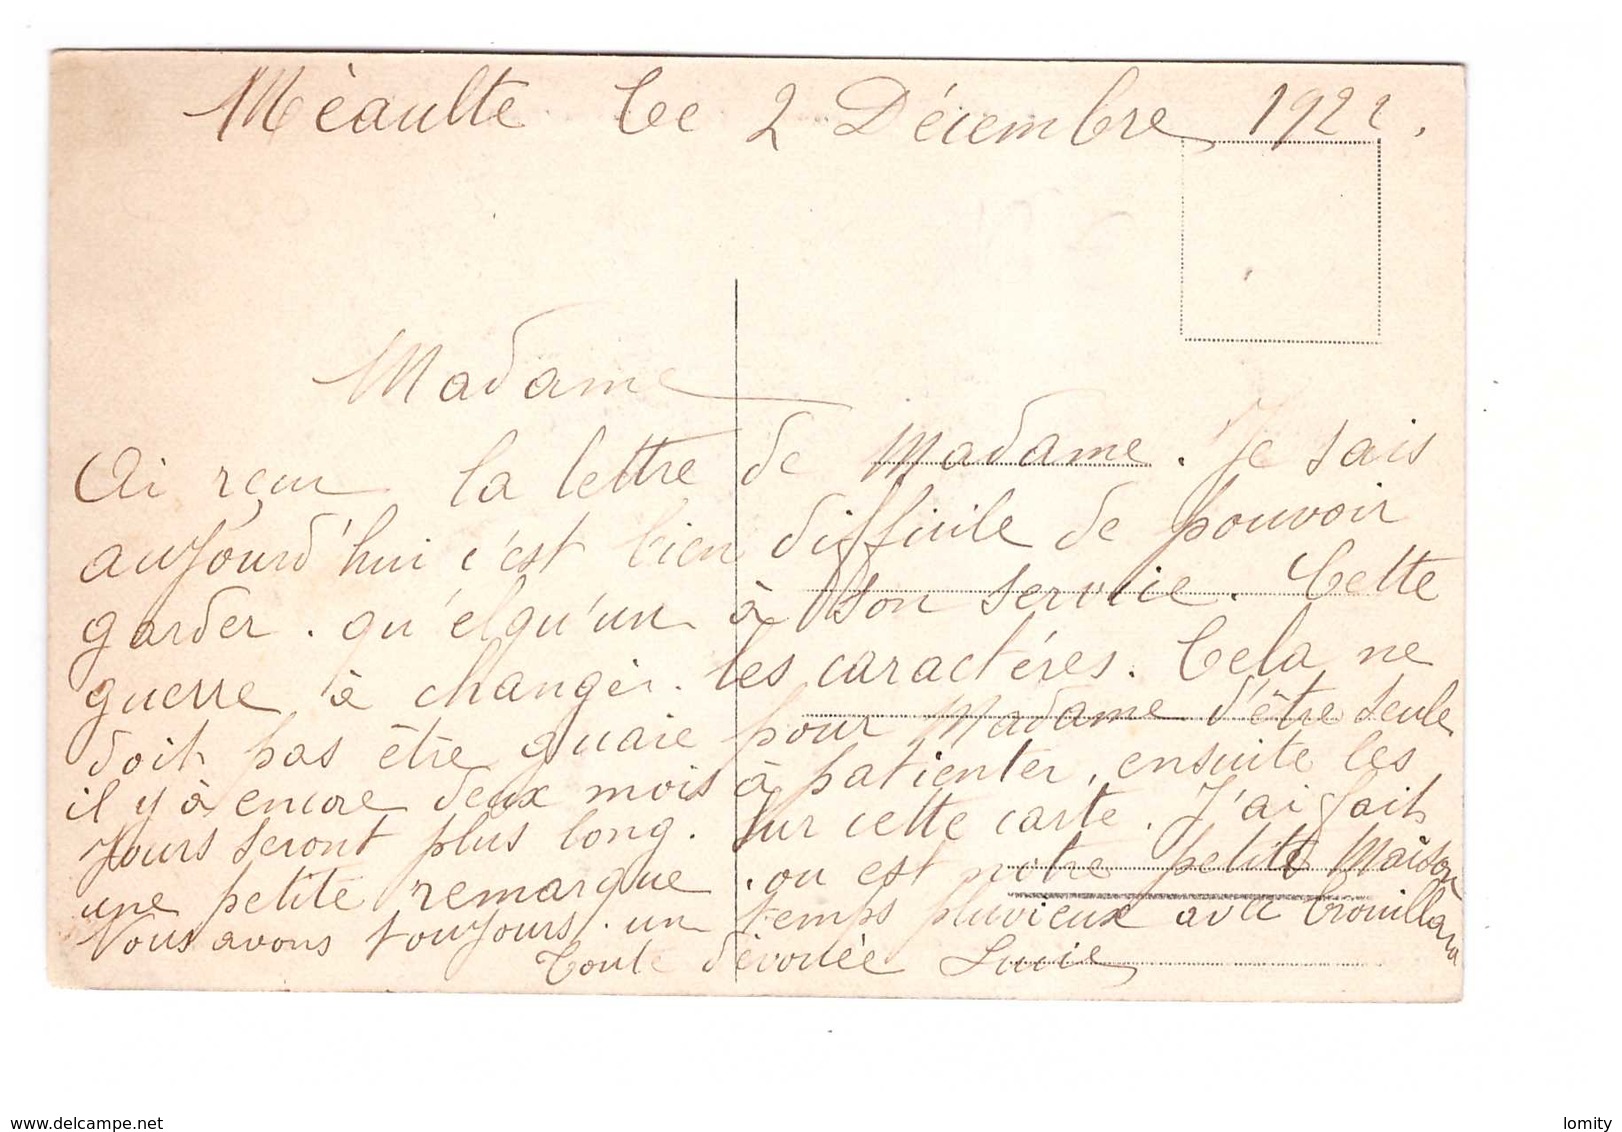 Mèaulte Le 2 Décembre 1922.
Madame
Ai reçu la lettre de Madame. Je sais
aujourd'hui c'est bien difficile de pouvoir
garder. qu'elqu'un à son service. Cette
guerre à changér. les caractéres. Cela ne
doit pas être guaie pour Madame d'être seule
il y à encore deux mois à patienter, ensuite les
Jours seront plus long. Sur cette carte. J'ai fait
une petite remarque. ou est notre petite Maison
Nous avons toujours. un temps pluvieux avec brouillard
Toute dévouée Lucie
www.delcampe.net
lomity